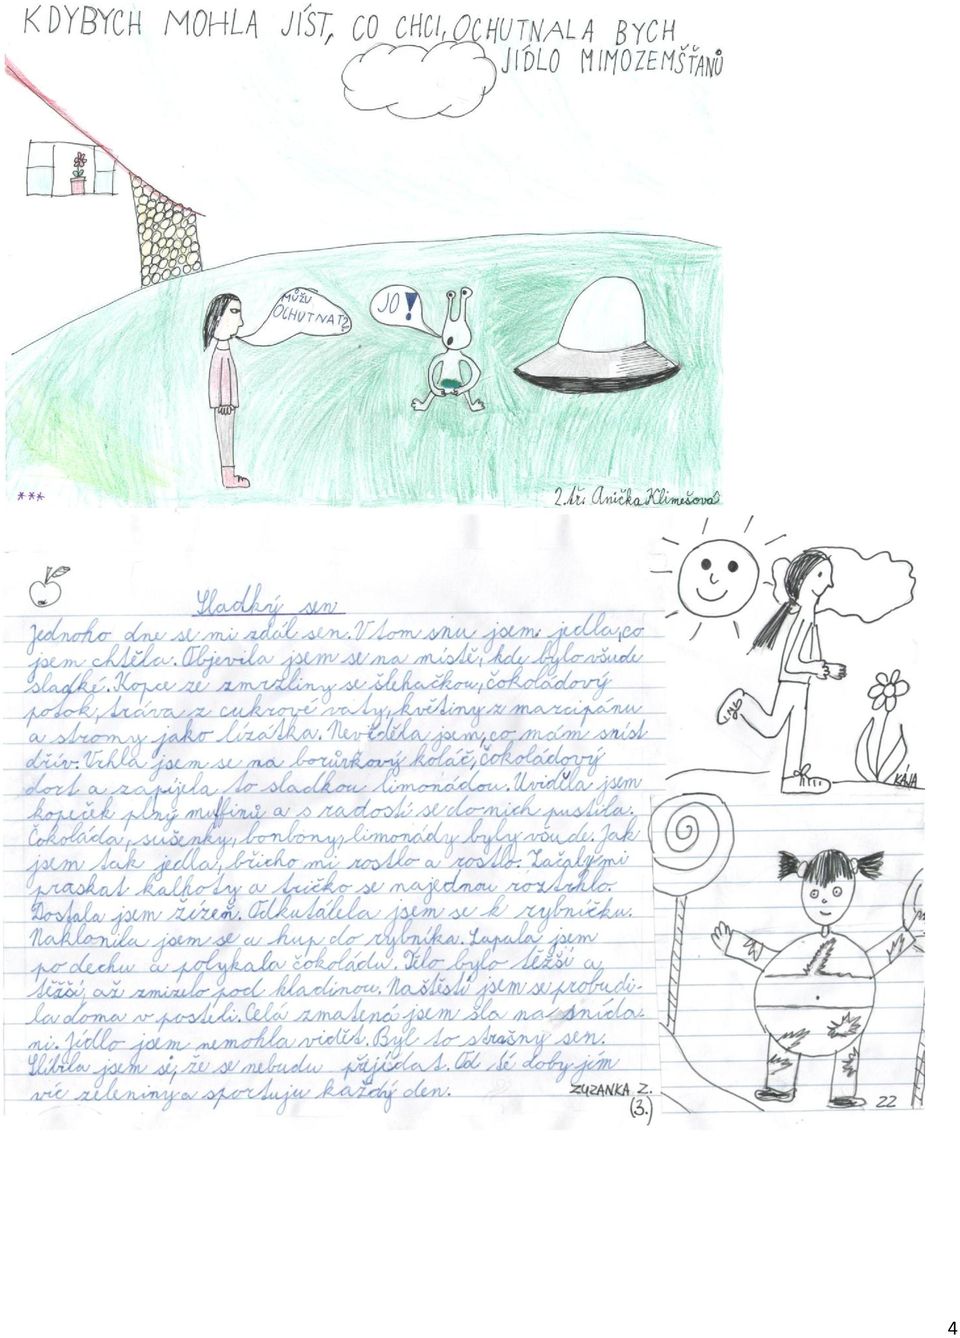 KDYBYCH MOHLA JÍST, CO CHCI, OCHUTNALA BYCH
JÍDLO MIMOZEMŠŤANŮ
MŮŽU
OCHUTNAT?
JO!
***
2. tř. Anička Klimešová
Sladký sen
Jednoho dne se mi zdál sen. V tom snu jsem jedla, co
jsem chtěla. Objevila jsem se na místě, kde bylo všude
sladké. Kopce ze zmrzliny se šlehačkou, čokoládový
potok, tráva z cukrové vaty, květiny z marcipánu
a stromy jako lízátka. Nevěděla jsem, co mám sníst
dřív. Vrhla jsem se na borůvkový koláč, čokoládový
dort a zapíjela to sladkou limonádou. Uviděla jsem
kopeček plný muffinů a s radostí se do nich pustila.
Čokoláda, sušenky, bonbony, limonády byly všude. Jak
jsem tak jedla, břicho mi rostlo a rostlo. Začaly mi
praskat kalhoty a tričko se najednou roztrhlo.
Dostala jsem žízeň. Odkutálela jsem se k rybníčku.
Naklonila jsem se a hup do rybníka. Lapala jsem
po dechu a polykala čokoládu. Tělo bylo těžší a
těžší, až zmizelo pod hladinou. Naštěstí jsem se probudi-
la doma v posteli. Celá zmatená jsem šla na snída-
ni. Jídlo jsem nemohla vidět. Byl to strašný sen.
Slíbila jsem si, že se nebudu přejídat. Od té doby jím
víc zeleniny a sportuju každý den.
ZUZANKA Z.
(3.)
KÁJA
ZZ
4